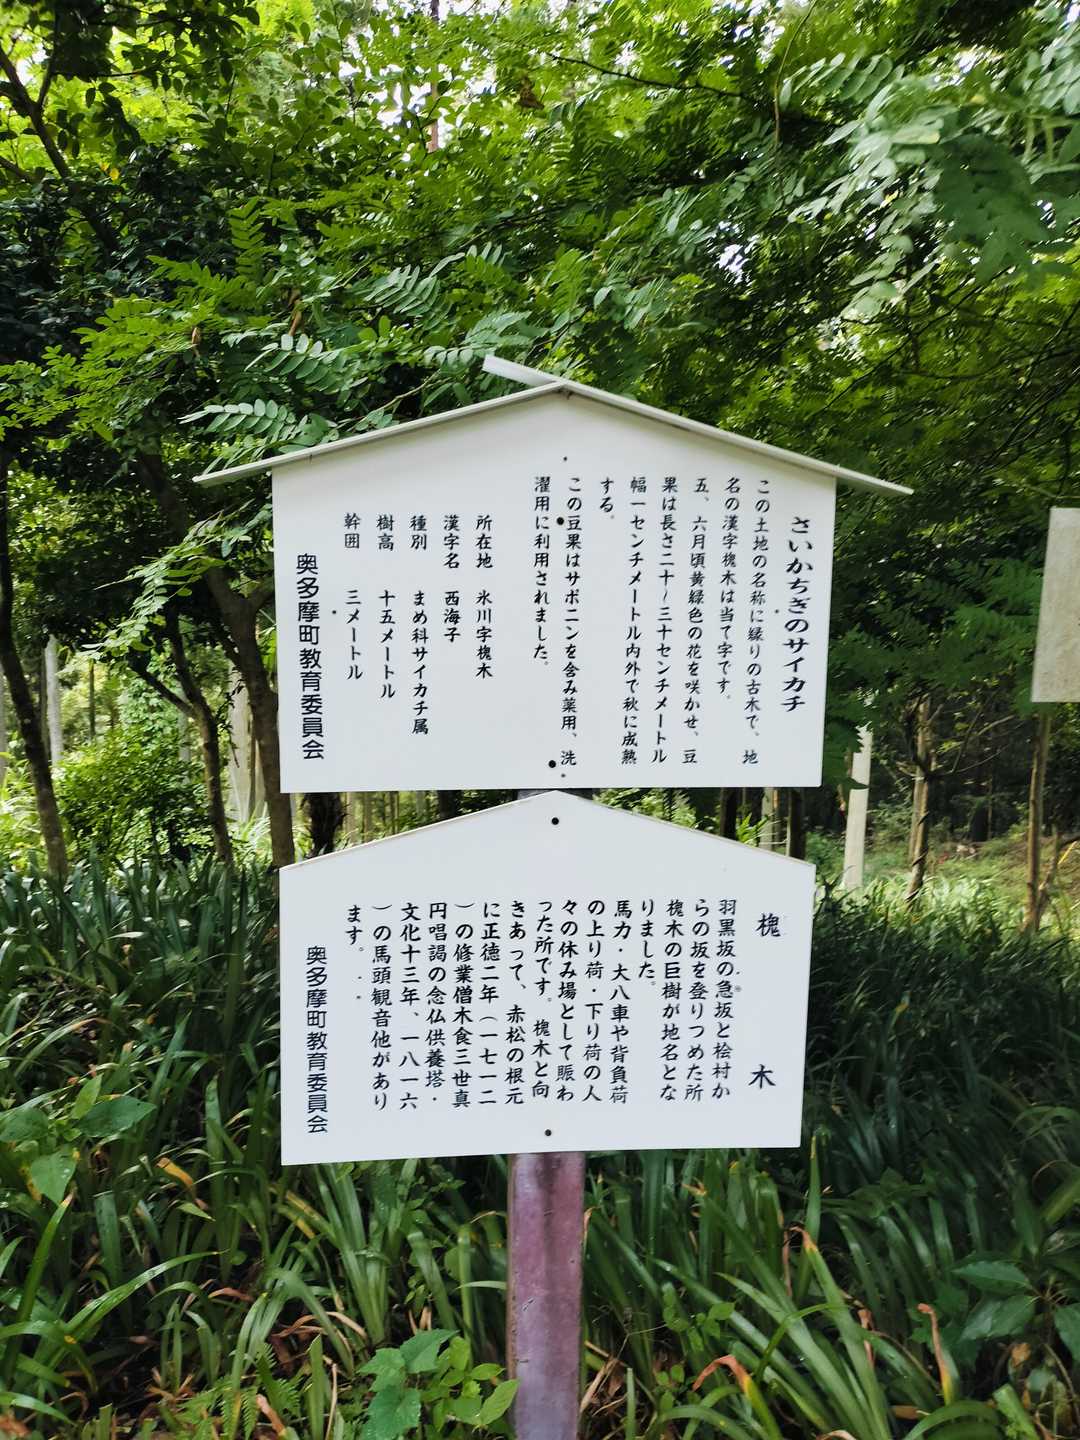 さいかちぎのサイカチ
この土地の名称に縁りの古木で、地
名の漢字槐木は当て字です。
五、六月頃黄緑色の花を咲かせ、豆
果は長さ二十～三十センチメートル
幅一センチメートル内外で秋に成熟
する。
この豆果はサポニンを含み薬用、洗
濯用に利用されました。
所在地 氷川字槐木
漢字名 西海子
種別 まめ科サイカチ属
樹高 十五メートル
幹囲 三メートル
奥多摩町教育委員会
槐木
羽黒坂の急坂と桧村か
らの坂を登りつめた所
槐木の巨樹が地名とな
りました。
馬力・大八車や背負荷
の上り荷・下り荷の人
々の休み場として賑わ
った所です。槐木と向
きあって、赤松の根元
に正徳二年（一七一二
）の修業僧木食三世真
円唱謁の念仏供養塔・
文化十三年、一八一六
）の馬頭観音他があり
ます。
奥多摩町教育委員会